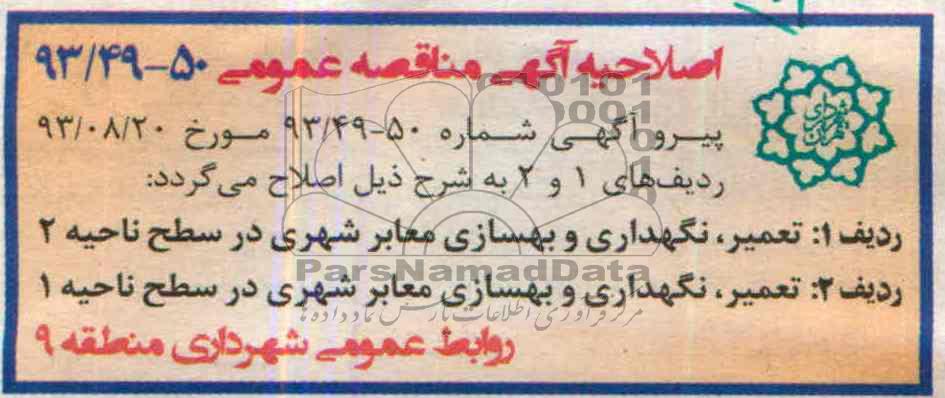 اصلاحیه آگهی مناقصه عمومی ۵۰-۹۳/۴۹
پیرو آگهی شماره ۵۰-۹۳/۴۹ مورخ ۹۳/۰۸/۲۰
ردیف‌های ۱ و ۲ به شرح ذیل اصلاح می‌گردد:
ردیف ۱: تعمیر، نگهداری و بهسازی معابر شهری در سطح ناحیه ۲
ردیف ۲: تعمیر، نگهداری و بهسازی معابر شهری در سطح ناحیه ۱
روابط عمومی شهرداری منطقه ۹
شهرداری تهران
ParsNamadData
مرکز فرآوری اطلاعات پارس نماد داده ها